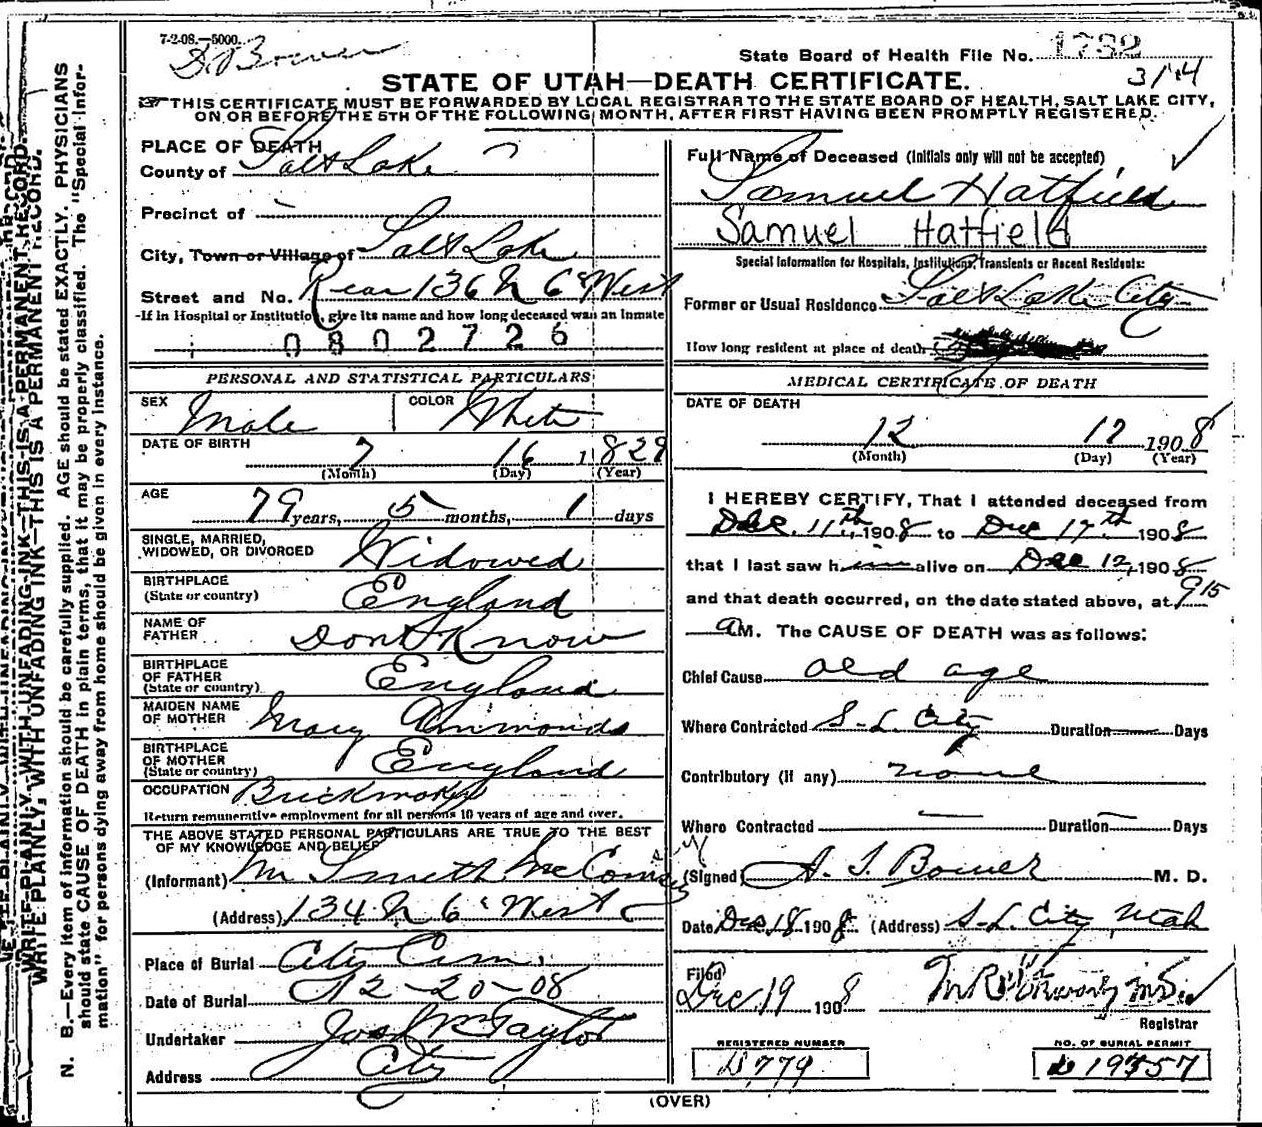 7-2-08.—5000.
State Board of Health File No. 1782
3/14
STATE OF UTAH—DEATH CERTIFICATE.
THIS CERTIFICATE MUST BE FORWARDED BY LOCAL REGISTRAR TO THE STATE BOARD OF HEALTH, SALT LAKE CITY,
ON OR BEFORE THE 5TH OF THE FOLLOWING MONTH, AFTER FIRST HAVING BEEN PROMPTLY REGISTERED.
PLACE OF DEATH
County of Salt Lake
Precinct of
City, Town or Village of Salt Lake
Street and No. Rear 136 N 6 West
If in Hospital or Institution, give its name and how long deceased was an Inmate
0802726
PERSONAL AND STATISTICAL PARTICULARS
SEX Male COLOR White
DATE OF BIRTH 7 16 1829
(Month) (Day) (Year)
AGE 79 years, 5 months, 1 days
SINGLE, MARRIED,
WIDOWED, OR DIVORCED Widowed
BIRTHPLACE
(State or country) England
NAME OF
FATHER Dont Know
BIRTHPLACE
OF FATHER
(State or country) England
MAIDEN NAME
OF MOTHER Mary Ammonds
BIRTHPLACE
OF MOTHER
(State or country) England
OCCUPATION Brickmaker
Return remunerative employment for all persons 10 years of age and over.
THE ABOVE STATED PERSONAL PARTICULARS ARE TRUE TO THE BEST
OF MY KNOWLEDGE AND BELIEF
(Informant)
(Address) 134 N 6 West
Place of Burial City Cem.
Date of Burial 12-20-08
Undertaker Jos Wm Taylor
Address City
Full Name of Deceased (Initials only will not be accepted)
Samuel Hatfield
Samuel Hatfield
Special Information for Hospitals, Institutions, Transients or Recent Residents:
Former or Usual Residence Salt Lake City
How long resident at place of death
MEDICAL CERTIFICATE OF DEATH
DATE OF DEATH
12 17 1908
(Month) (Day) (Year)
I HEREBY CERTIFY, That I attended deceased from
Dec. 11th, 1908 to Dec 17th 1908
that I last saw him alive on Dec 12, 1908
and that death occurred, on the date stated above, at 915
AM. The CAUSE OF DEATH was as follows:
Chief Cause old age
Where Contracted S-L. City Duration Days
Contributory (if any) none
Where Contracted Duration Days
(Signed) A. S. Bower M. D.
Date Dec 18 1908 (Address) S-L. City Utah
Filed
Dec 19 1908
Registrar
REGISTERED NUMBER
D779
NO. OF BURIAL PERMIT
(OVER)
WRITE PLAINLY, WITH UNFADING INK—THIS IS A PERMANENT RECORD.
N. B.—Every item of information should be carefully supplied. AGE should be stated EXACTLY. PHYSICIANS
should state CAUSE OF DEATH in plain terms, that it may be properly classified. The "Special Infor-
mation" for persons dying away from home should be given in every instance.